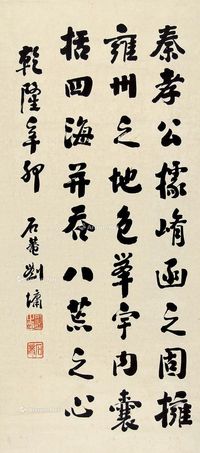 秦孝公據崤函之固擁
雍州之地包举宇内囊
括四海并吞八荒之心
乾隆辛卯 石菴劉墉